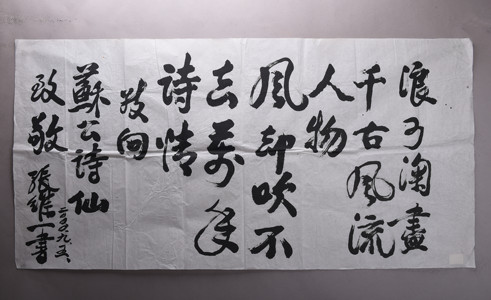 浪可淘盡
千古風流
人物
風却吹不
去萬年
詩情
向
蘇公詩仙
致敬
張 一書
二〇〇九.五.